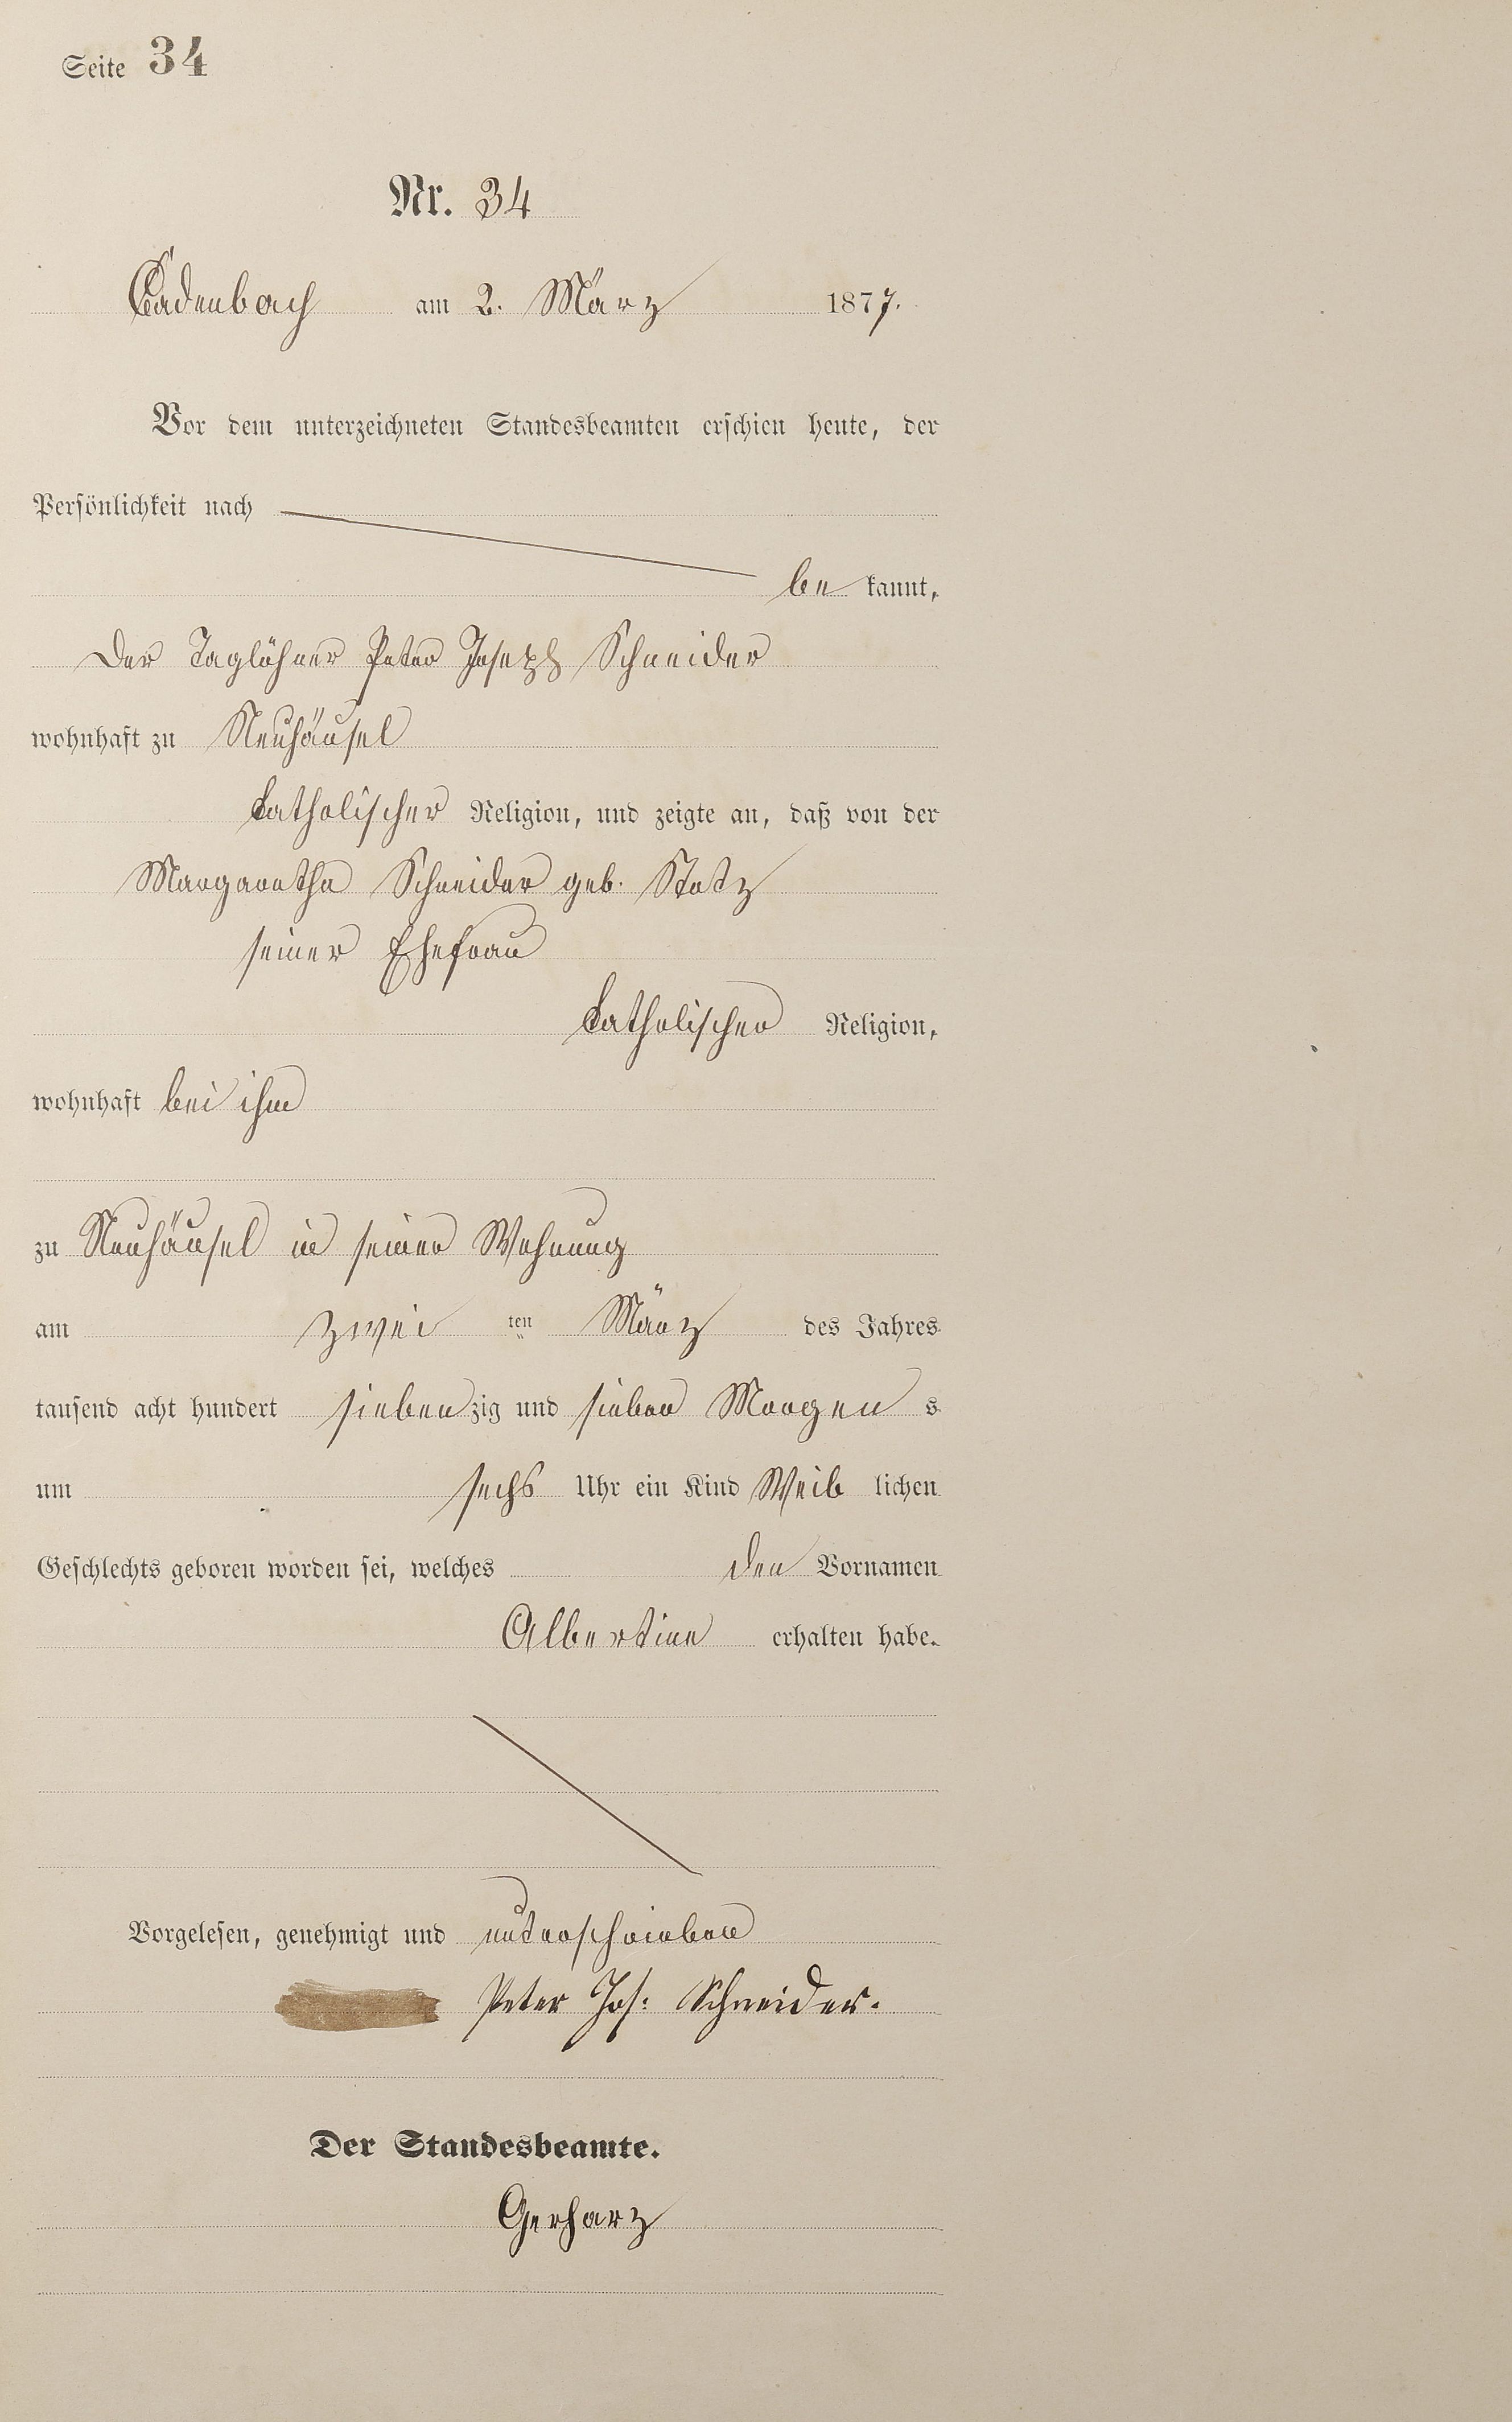 Seite 34
Nr. 34
Cadenbach am 2. März 1877.
Vor dem unterzeichneten Standesbeamten erschien heute, der
Persönlichkeit nach
be kannt,
Der Taglöhner Peter Joseph Schneider
wohnhaft zu Neuhäusel
katholischer Religion, und zeigte an, daß von der
Margaretha Schneider geb. Stotz
seiner Ehefrau
katholischer Religion,
wohnhaft bei ihm
zu Neuhäusel in seiner Wohnung
am zwei ten März des Jahres
tausend acht hundert sieben zig und sieben Morgen s
um sechs Uhr ein Kind Weib lichen
Geschlechts geboren worden sei, welches den Vornamen
Albertine erhalten habe.
Vorgelesen, genehmigt und unterschrieben
Peter Jos: Schneider.
Der Standesbeamte.
Gerharz